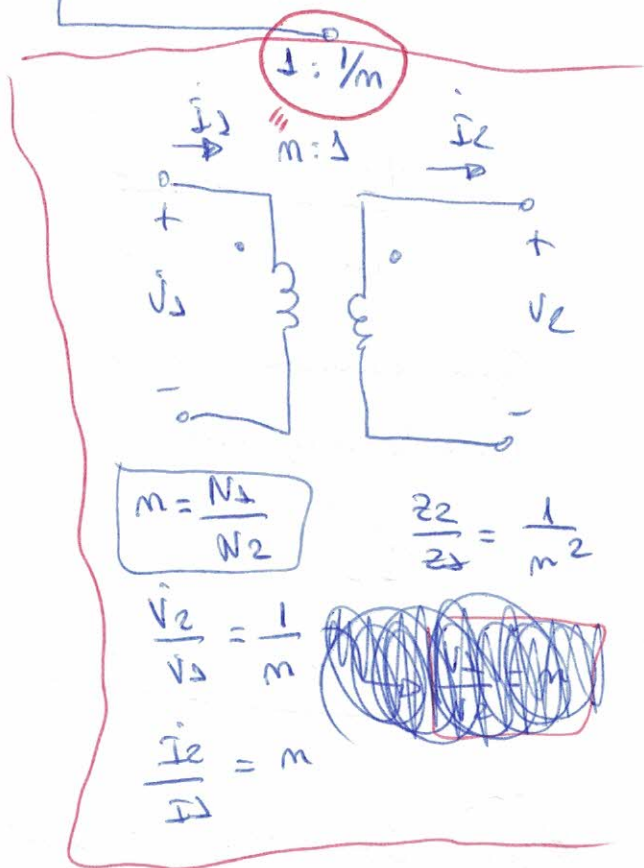 1 : 1/n
n : 1
İ1 İ2
+ +
V̇1 V2
- -
n = N1/N2
Z2/Z1 = 1/n²
V̇2/V̇1 = 1/n
İ2/İ1 = n